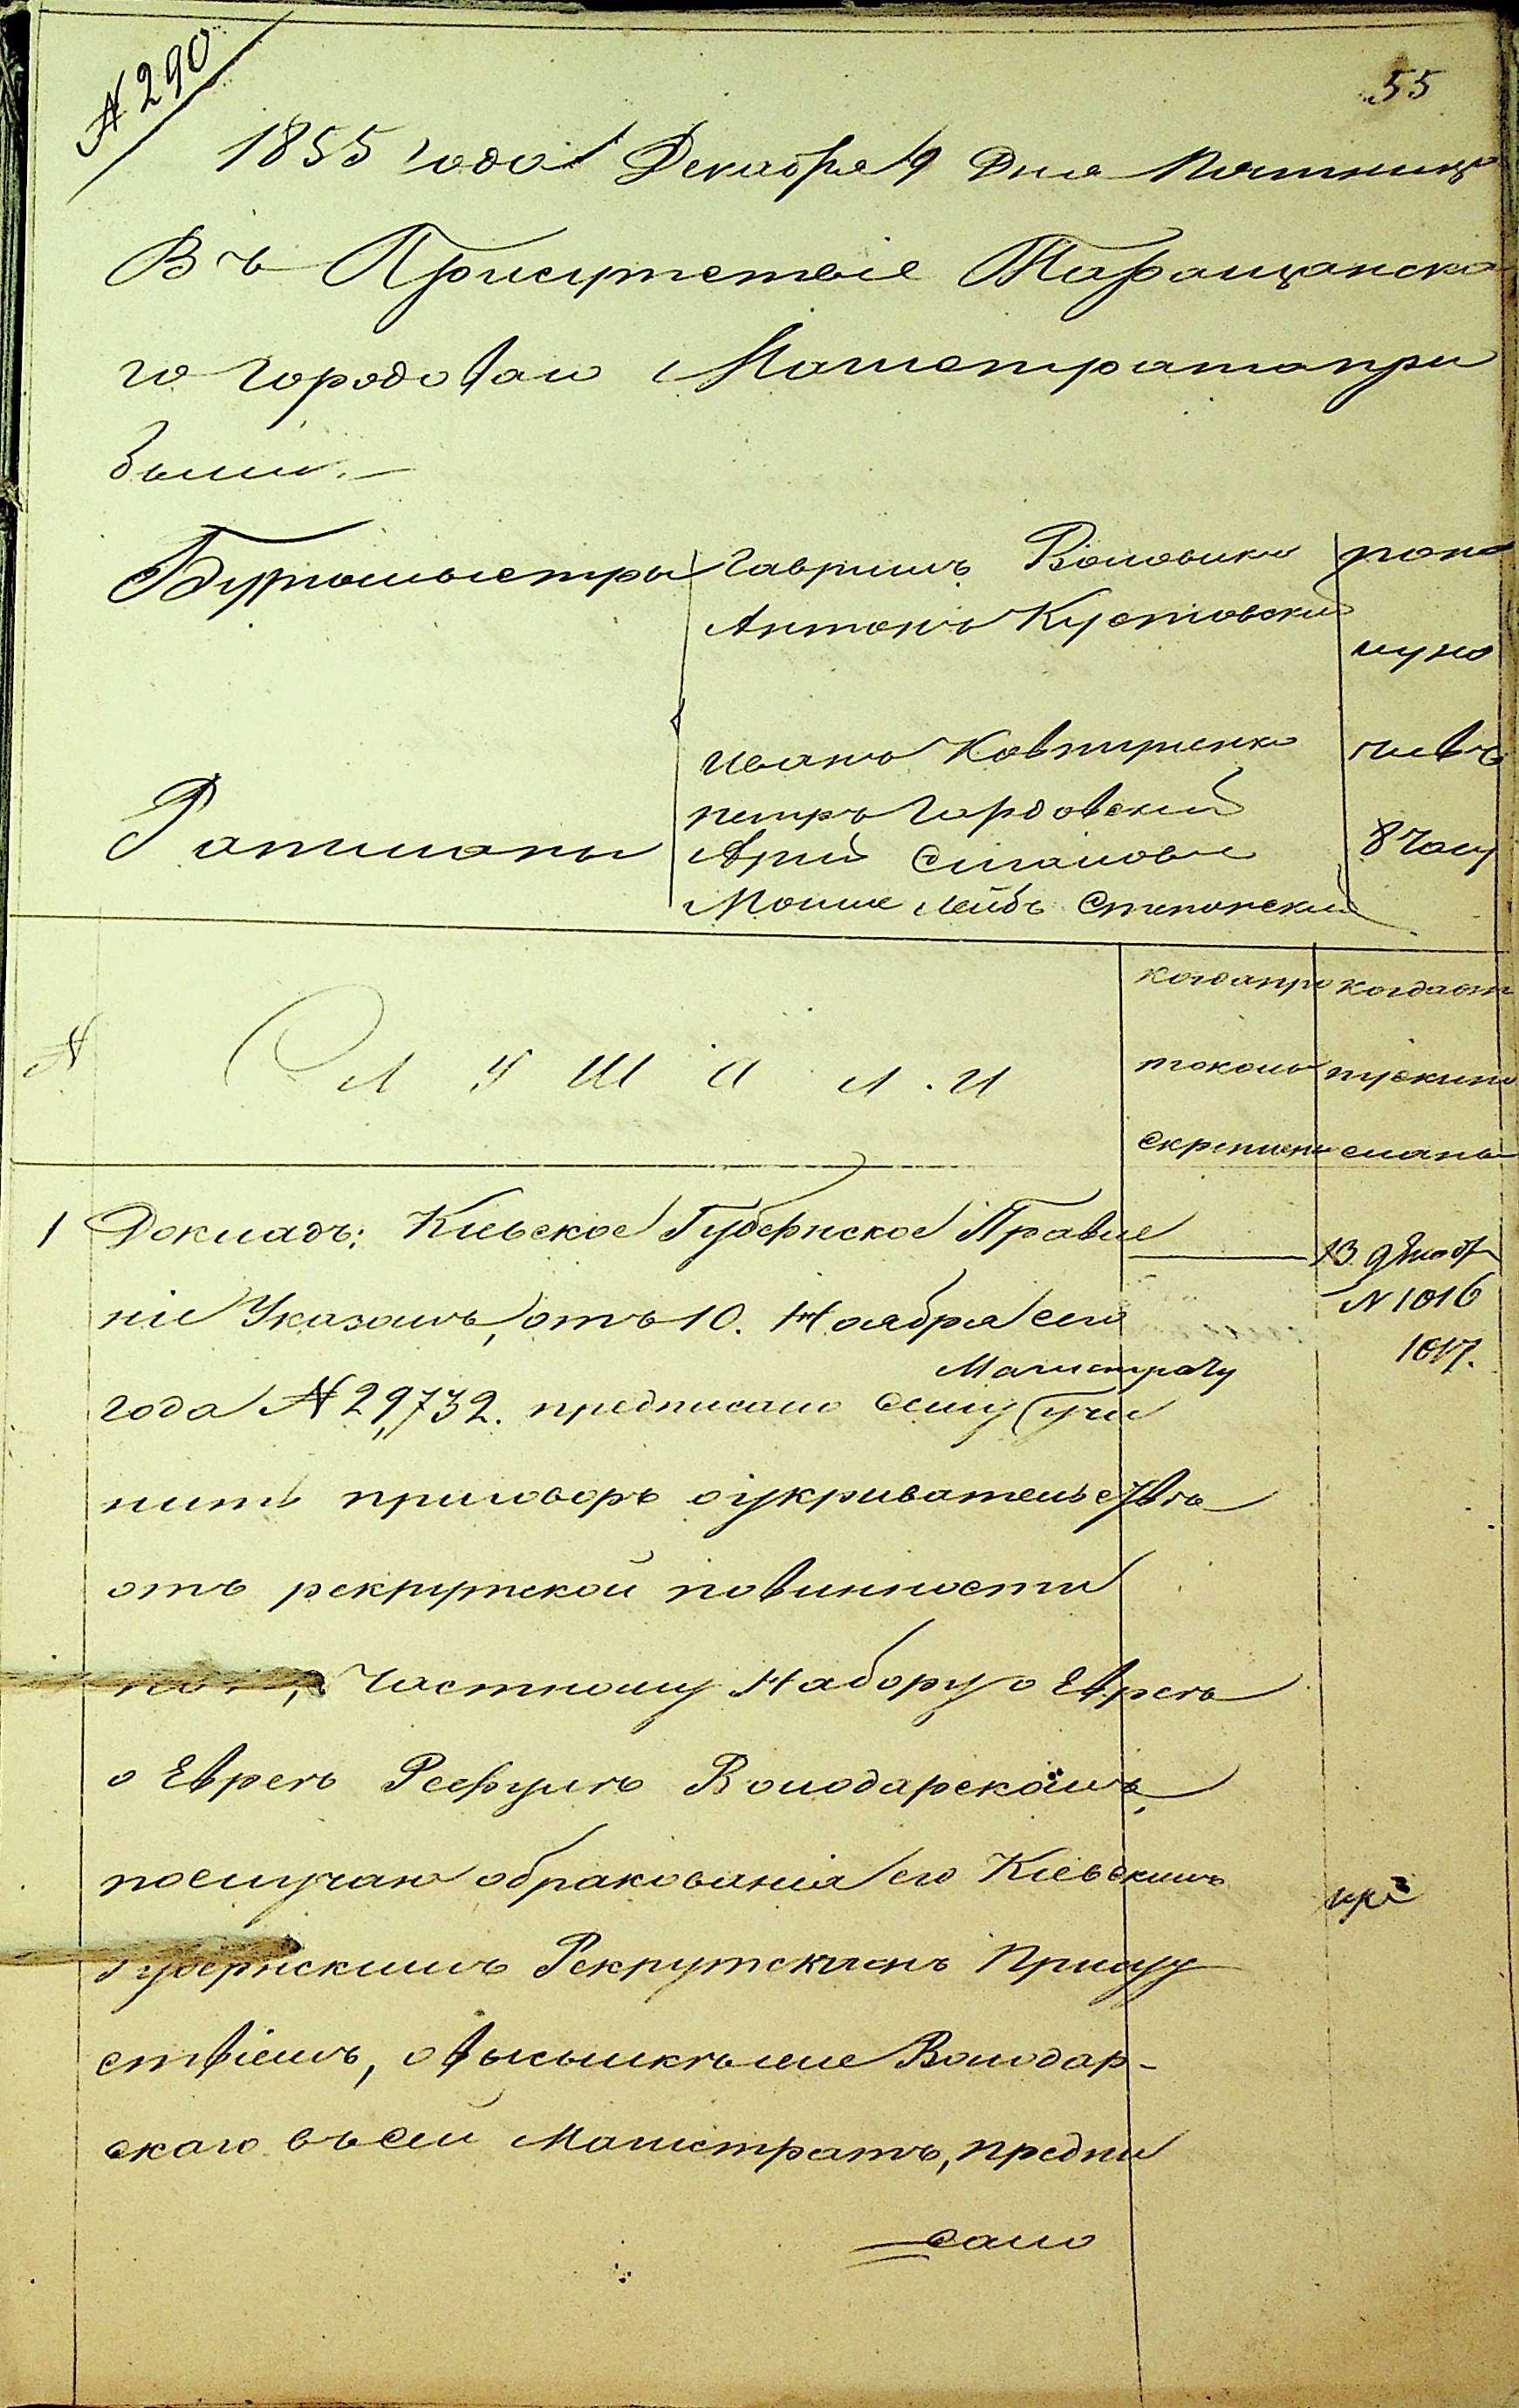 № 290
55
1855 года Декабря 9 Дня Пятница
Въ Присутствіе Таращанска
го Городоваго Магистрата при
были.
Бургомыстры
Гаврилъ Воловикъ
Антонъ Кустовскій
Ратманы
Иванъ Ковтуненко
Петръ Гордовскій
Арій
Мошке Лейбъ Степанскій
попо
луно
чивъ
8 часу
№
С Л У Ш А Л И
когда про
токолъ
скрепленъ
когда от
пускъ по
сланъ
1 Докладъ: Кіевское Губернское Правле
ніе Указомъ, отъ 10. Ноября сего
Магистрату
года № 29,732. предписало сему учи
нить приговоръ о укривательствѣ
отъ рекрутской повинности
по частному Набору о Евреѣ
о Евреѣ Рефулѣ Володарскомъ,
послучаю обракованія его Кіевскимъ
Губернскимъ Рекрутскимъ Присут
ствіемъ, о высылкѣ же Володар-
скаго въ сей Магистратъ, предпи
сало
13 Декабр
№ 1016
1017.